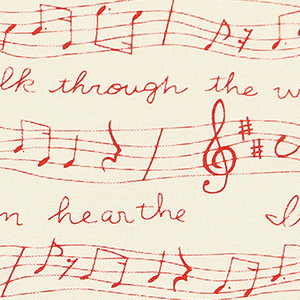 lk through the w
n hearthe I